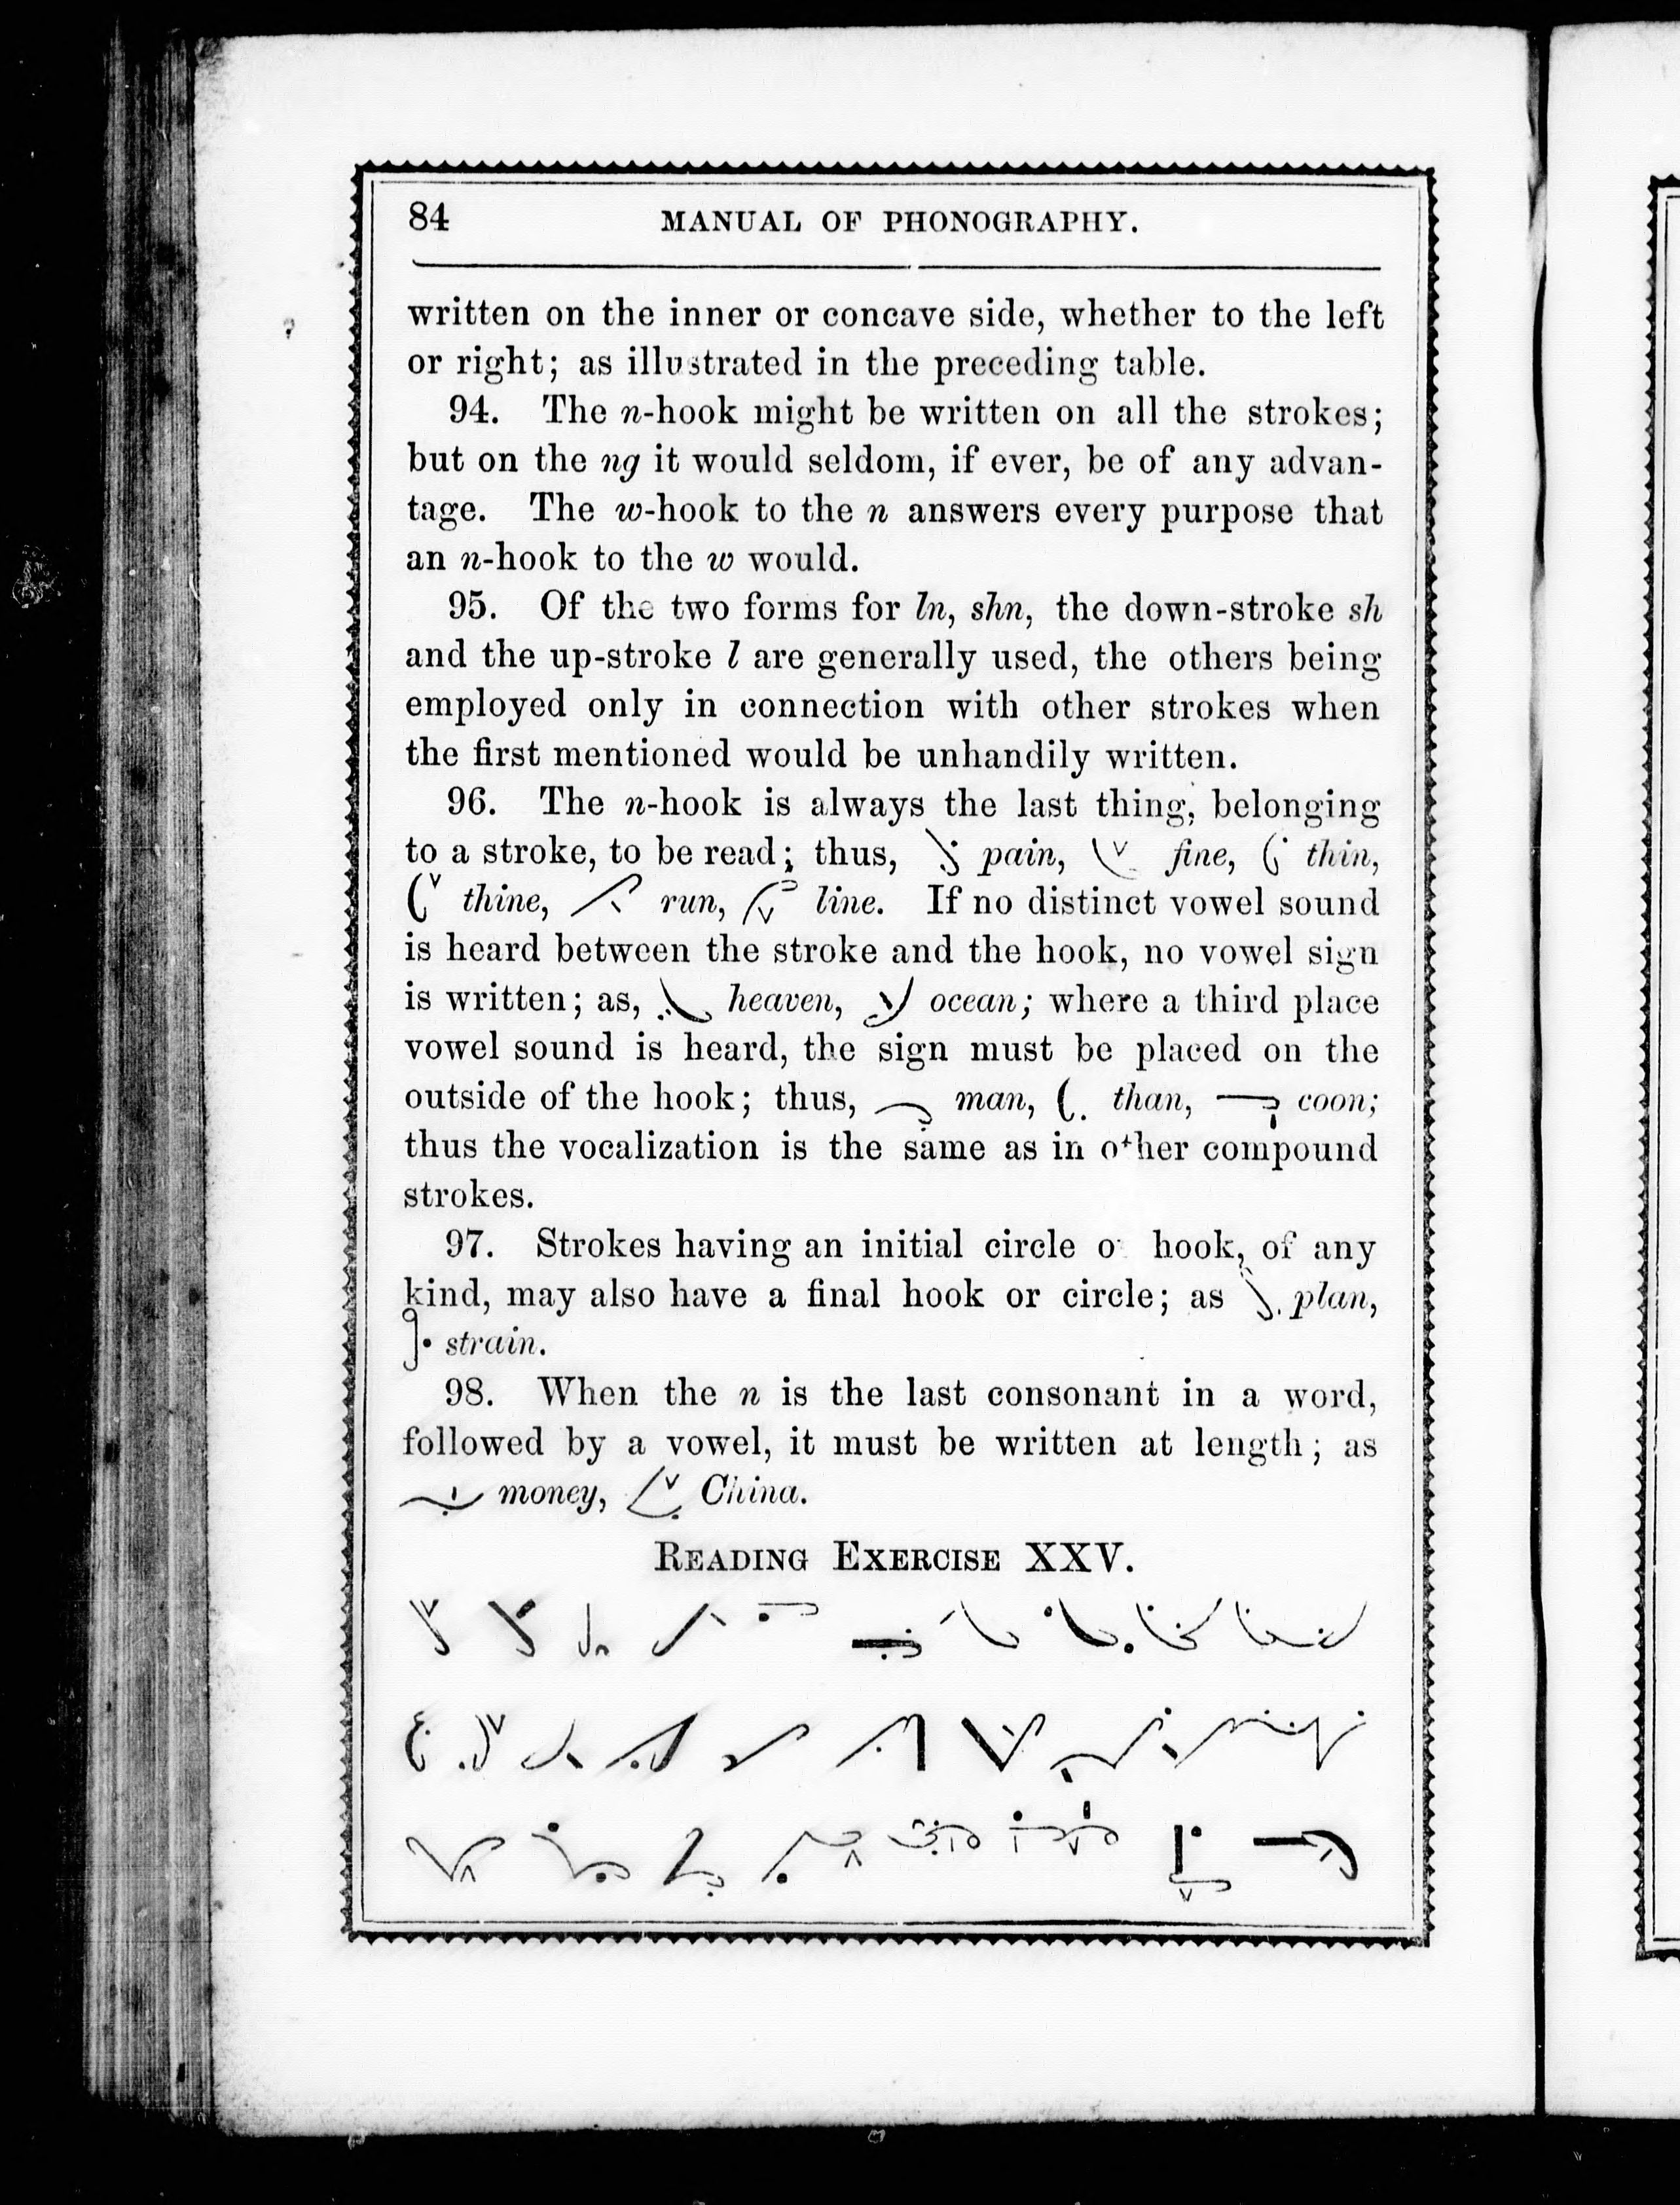 84 MANUAL OF PHONOGRAPHY.
written on the inner or concave side, whether to the left
or right; as illustrated in the preceding table.
94. The n-hook might be written on all the strokes;
but on the ng it would seldom, if ever, be of any advan-
tage. The w-hook to the n answers every purpose that
an n-hook to the w would.
95. Of the two forms for ln, shn, the down-stroke sh
and the up-stroke l are generally used, the others being
employed only in connection with other strokes when
the first mentioned would be unhandily written.
96. The n-hook is always the last thing, belonging
to a stroke, to be read; thus, pain, fine, thin,
thine, run, line. If no distinct vowel sound
is heard between the stroke and the hook, no vowel sign
is written; as, heaven, ocean; where a third place
vowel sound is heard, the sign must be placed on the
outside of the hook; thus, man, than, coon;
thus the vocalization is the same as in other compound
strokes.
97. Strokes having an initial circle o hook, of any
kind, may also have a final hook or circle; as plan,
strain.
98. When the n is the last consonant in a word,
followed by a vowel, it must be written at length; as
money, China.
READING EXERCISE XXV.